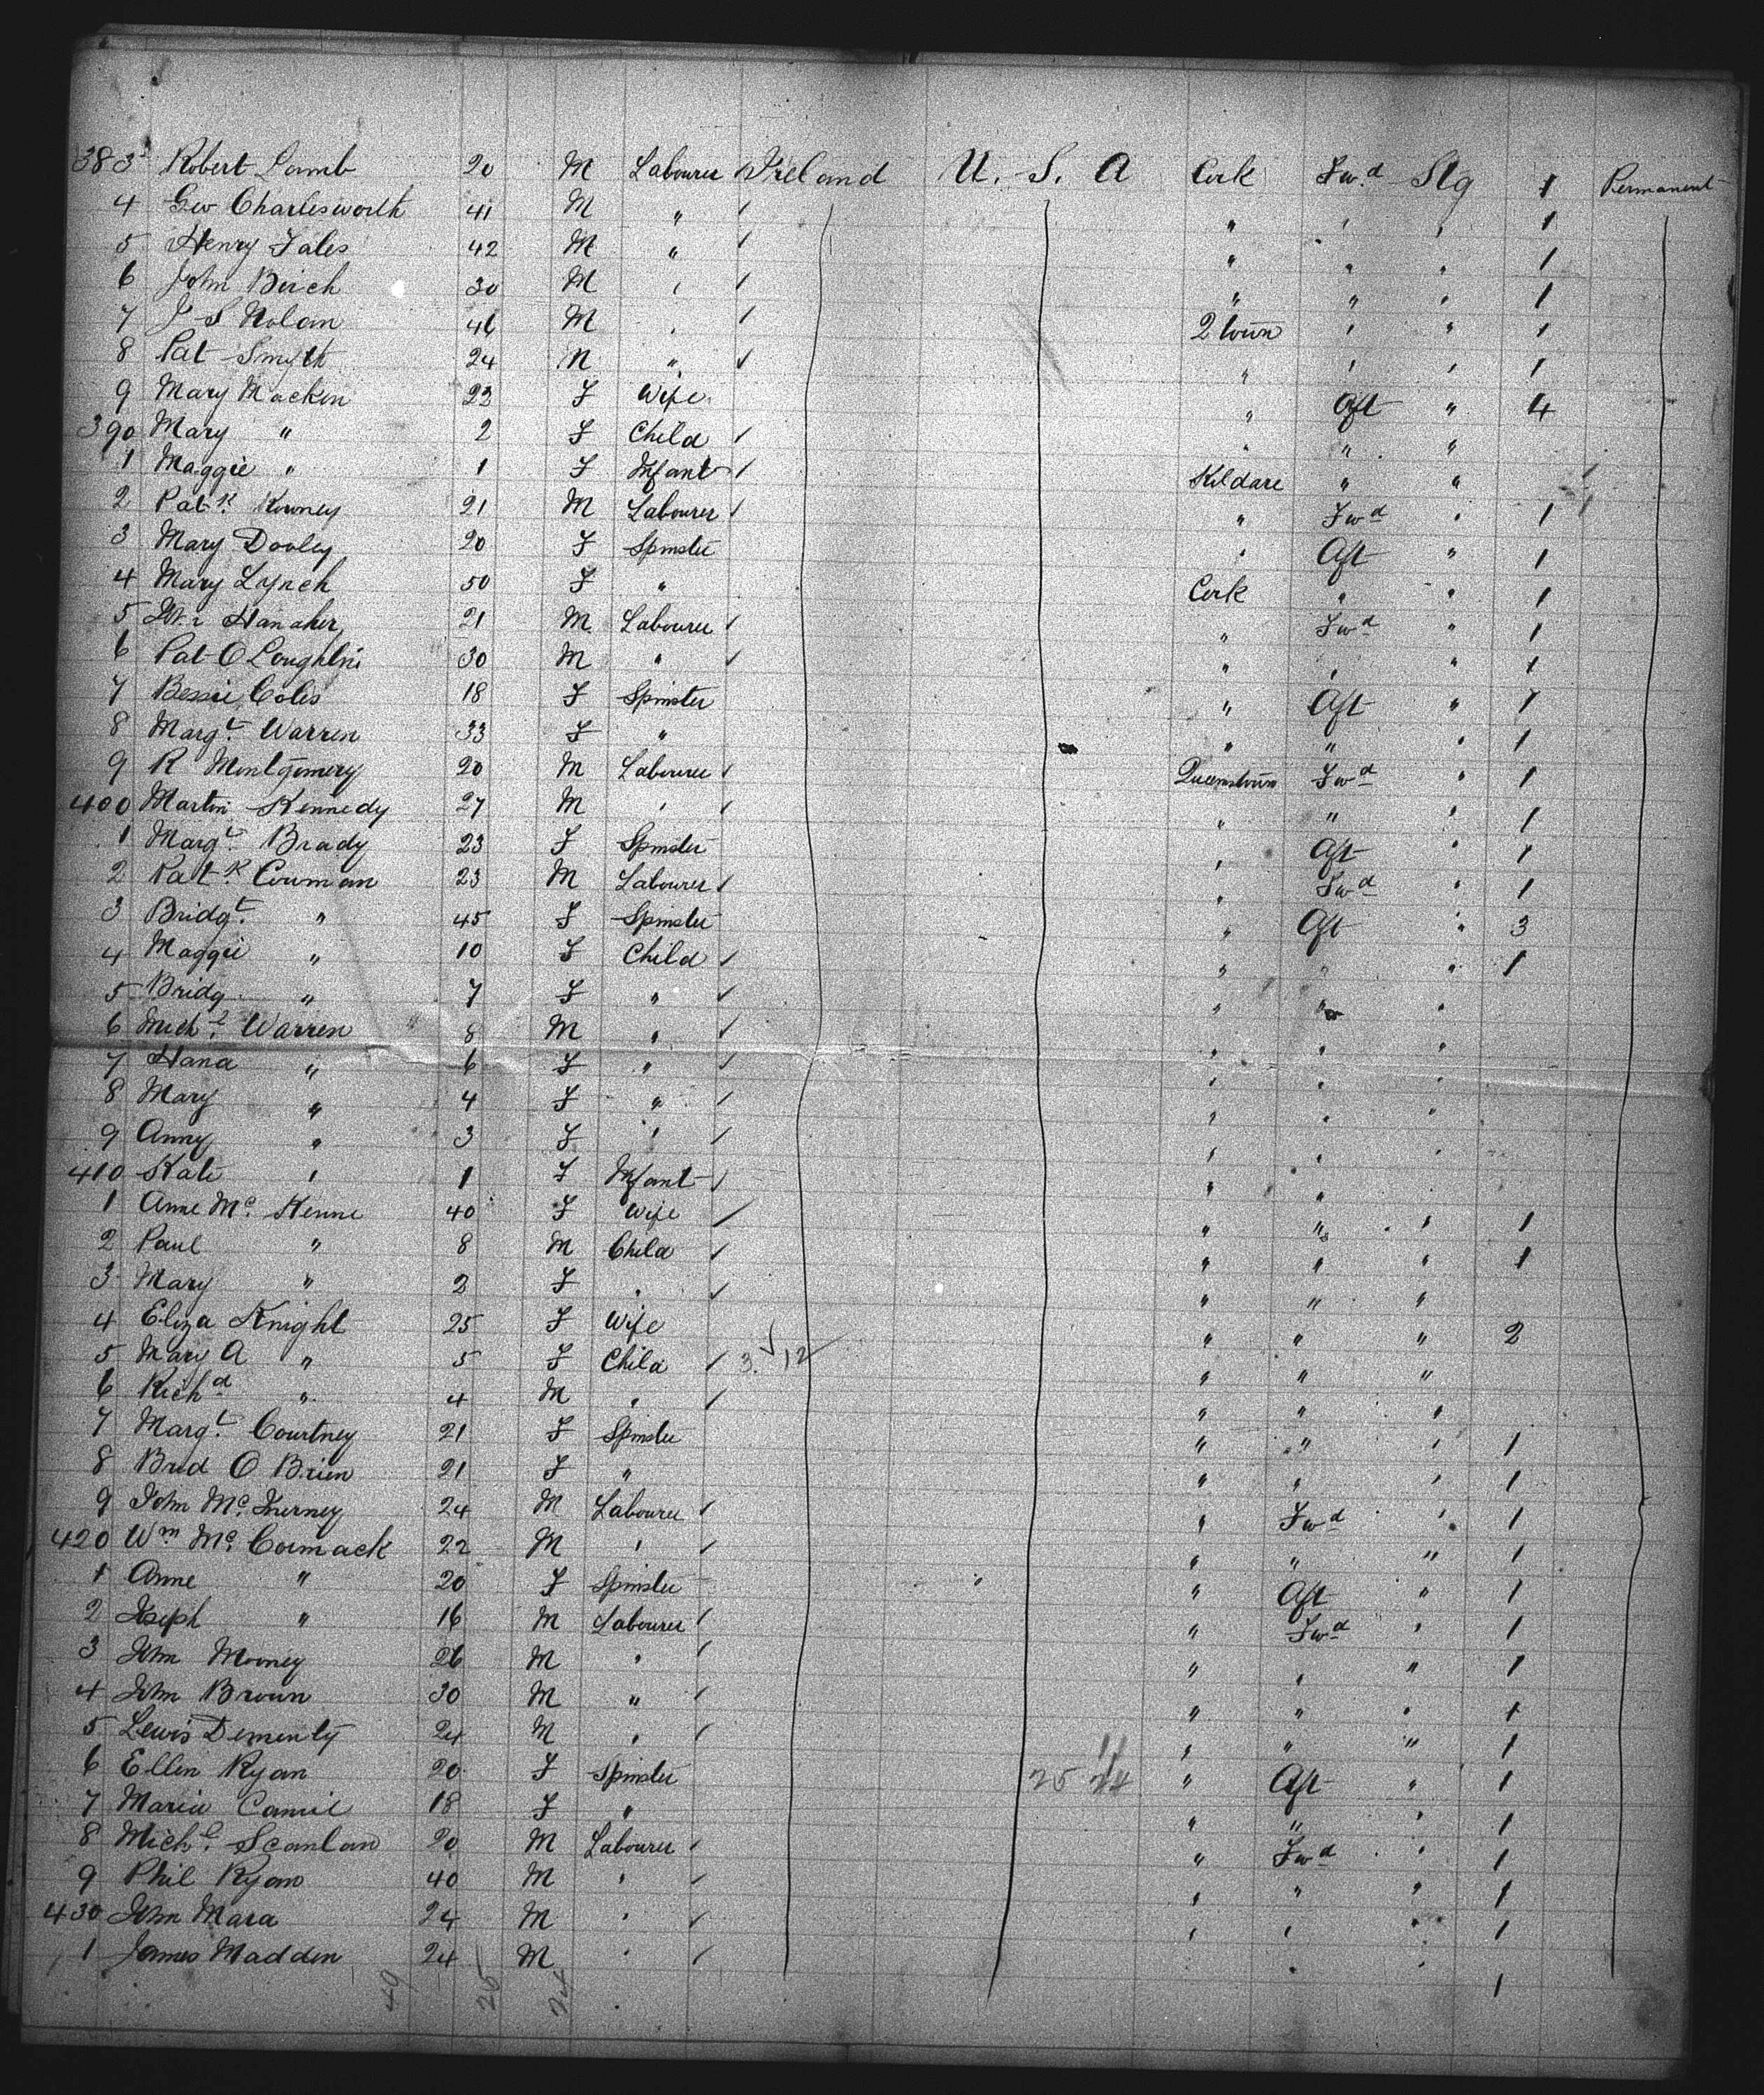 383 Robert Lamb 20 M Labourer Ireland U. S. A Cork Fwd Stg 1 Permanent
4 Geo Charlesworth 41 M " " ' ' 1
5 Henry Fales 42 M " " " " 1
6 John Birch 30 M " " " " 1
7 J S Nolan 46 M " Qtown " " 1
8 Pat Smyth 24 M " " " " 1
9 Mary Macken 23 F Wife " Aft " 4
390 Mary " 2 F Child " " "
1 Maggie " 1 F Infant Kildare " "
2 Patk. 21 M Labourer " Fwd " 1
3 Mary Dooley 20 F Spinster " Aft " 1
4 Mary Lynch 50 F " Cork " " 1
5 Hanaher 21 M Labourer " Fwd " 1
6 Pat O Loughlin 30 M " " " " 1
7 Bessie Coles 18 F Spinster " Aft " 1
8 Margt. Warren 33 F " " " " 1
9 R Montgomery 20 M Labourer Queenstown Fwd " 1
400 Martin Kennedy 27 M " " " " 1
1 Margt. Brady 23 F Spinster " Aft " 1
2 Patk. Couman 23 M Labourer " Fwd " 1
3 Bridgt. " 45 F Spinster " Aft " 3
4 Maggie " 10 F Child " " " 1
5 Bridg " 7 F " " " "
6 Michl. Warren 8 M " " " "
7 Hana " 6 F " " " "
8 Mary " 4 F " " " "
9 Anny " 3 F " " " "
410 Kate " 1 F Infant " "
1 Anne Mc. Kenne 40 F Wife " " " 1
2 Paul " 8 M Child " " " 1
3 Mary " 2 F " " " "
4 Eliza Knight 25 F Wife " " " 2
5 Mary A " 5 F Child 3. 12 " " "
6 Richd " 4 M " " " "
7 Margt. Courtney 21 F Spinster " " " 1
8 Brid O Brien 21 F " " " " 1
9 John Mc. 24 M Labourer " Fwd " 1
420 Wm. Mc. Cormack 22 M " " " " 1
1 Anne " 20 F Spinster " Aft " 1
2 Joseph " 16 M Labourer " Fwd " 1
3 John Mooney 26 M " " " " 1
4 John Brown 30 M " " " " 1
5 Lewis Dementy 24 M " " " " 1
6 Ellen Ryan 20 F Spinster 25 24 11 " Aft " 1
7 Maria 18 F " " " " 1
8 Michl. Scanlan 20 M Labourer " Fwd " 1
9 Phil Ryan 40 M " " " " 1
430 John Mara 24 M " " " " 1
1 James Madden 24 M " " " 1
49 25 24